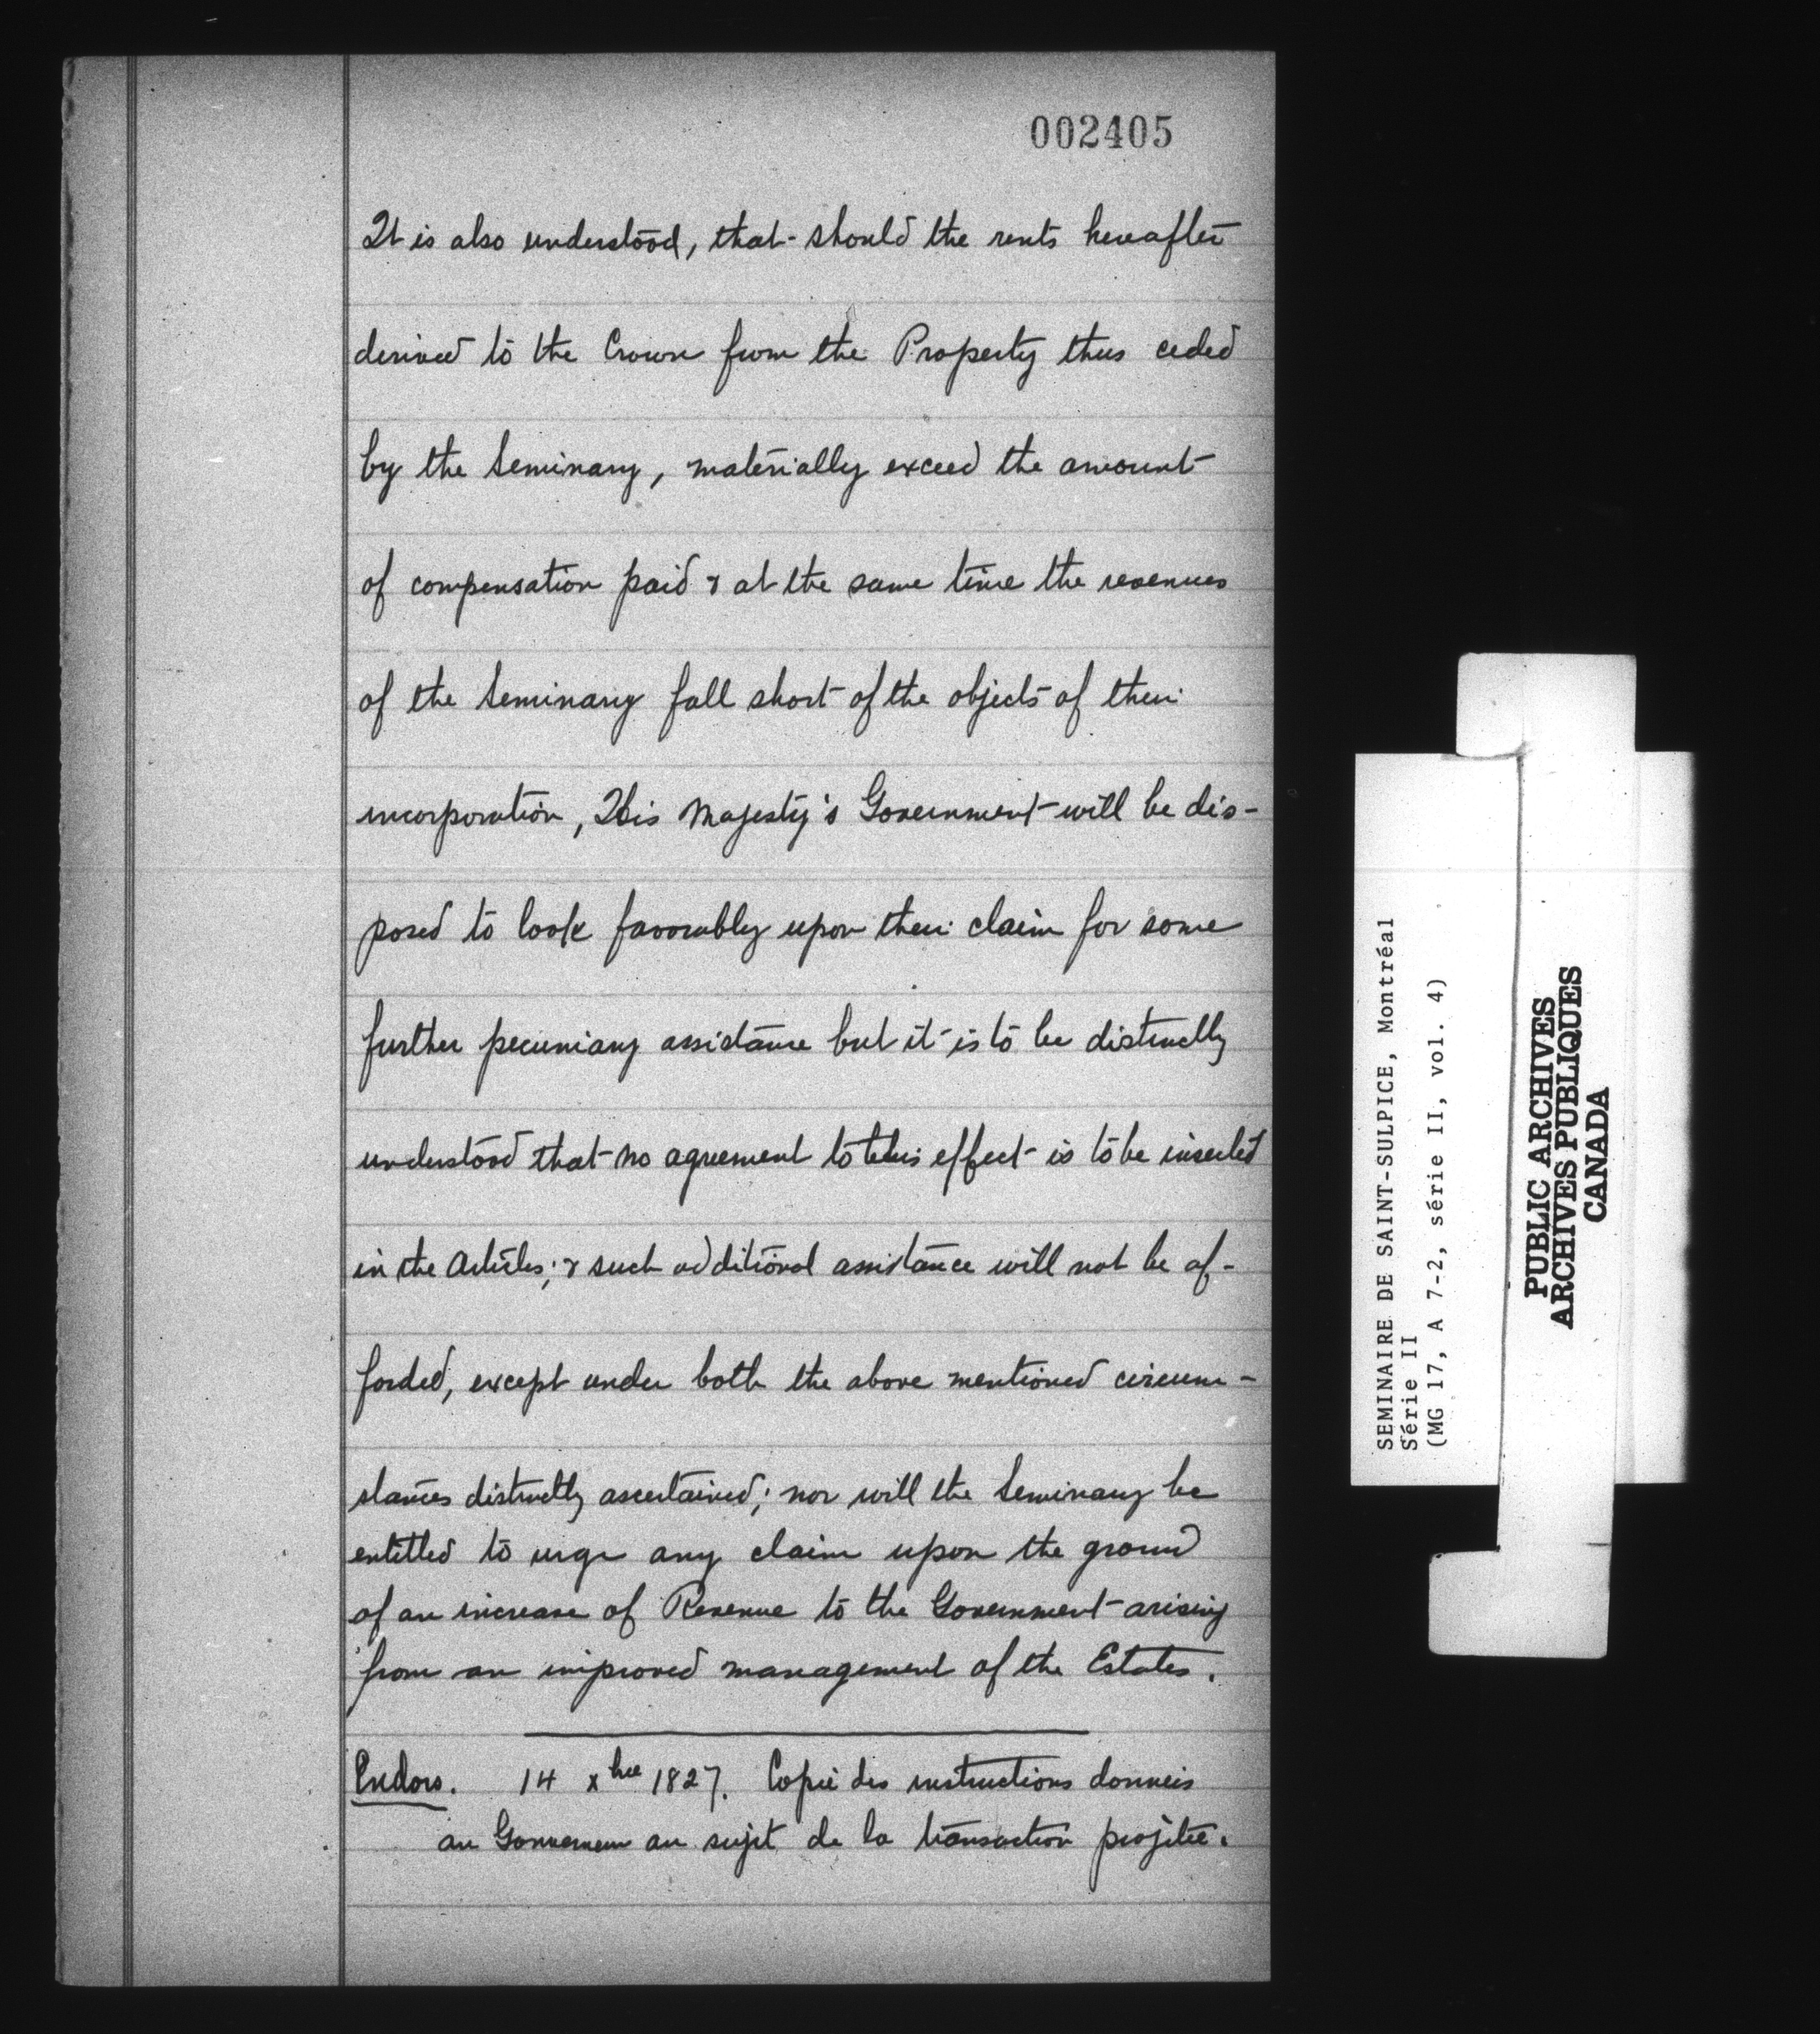 002405
It is also understood, that should the rents hereafter
derived to the Crown from the Property thus ceded
by the Seminary, materially exceed the amount
of compensation paid & at the same time the revenues
of the Seminary fall short of the objects of their
incorporation, His Majesty's Government will be dis-
posed to look favorably upon their claim for some
further pecuniary assistance but it is to be distinctly
understood that no agreement to this effect is to be inserted
in the Articles; & such additional assistance will not be af-
forded, except under both the above mentioned circum-
stances distinctly ascertained; nor will the Seminary be
entitled to urge any claim upon the ground
of an increase of Revenue to the Government arising
from an improved management of the Estates.
Endors. 14 xbre 1827. Copie des instructions données
au Gouverneur au sujet de la transaction projetée.
SEMINAIRE DE SAINT-SULPICE, Montréal
Série II
(MG 17, A 7-2, série II, vol. 4)
PUBLIC ARCHIVES
ARCHIVES PUBLIQUES
CANADA